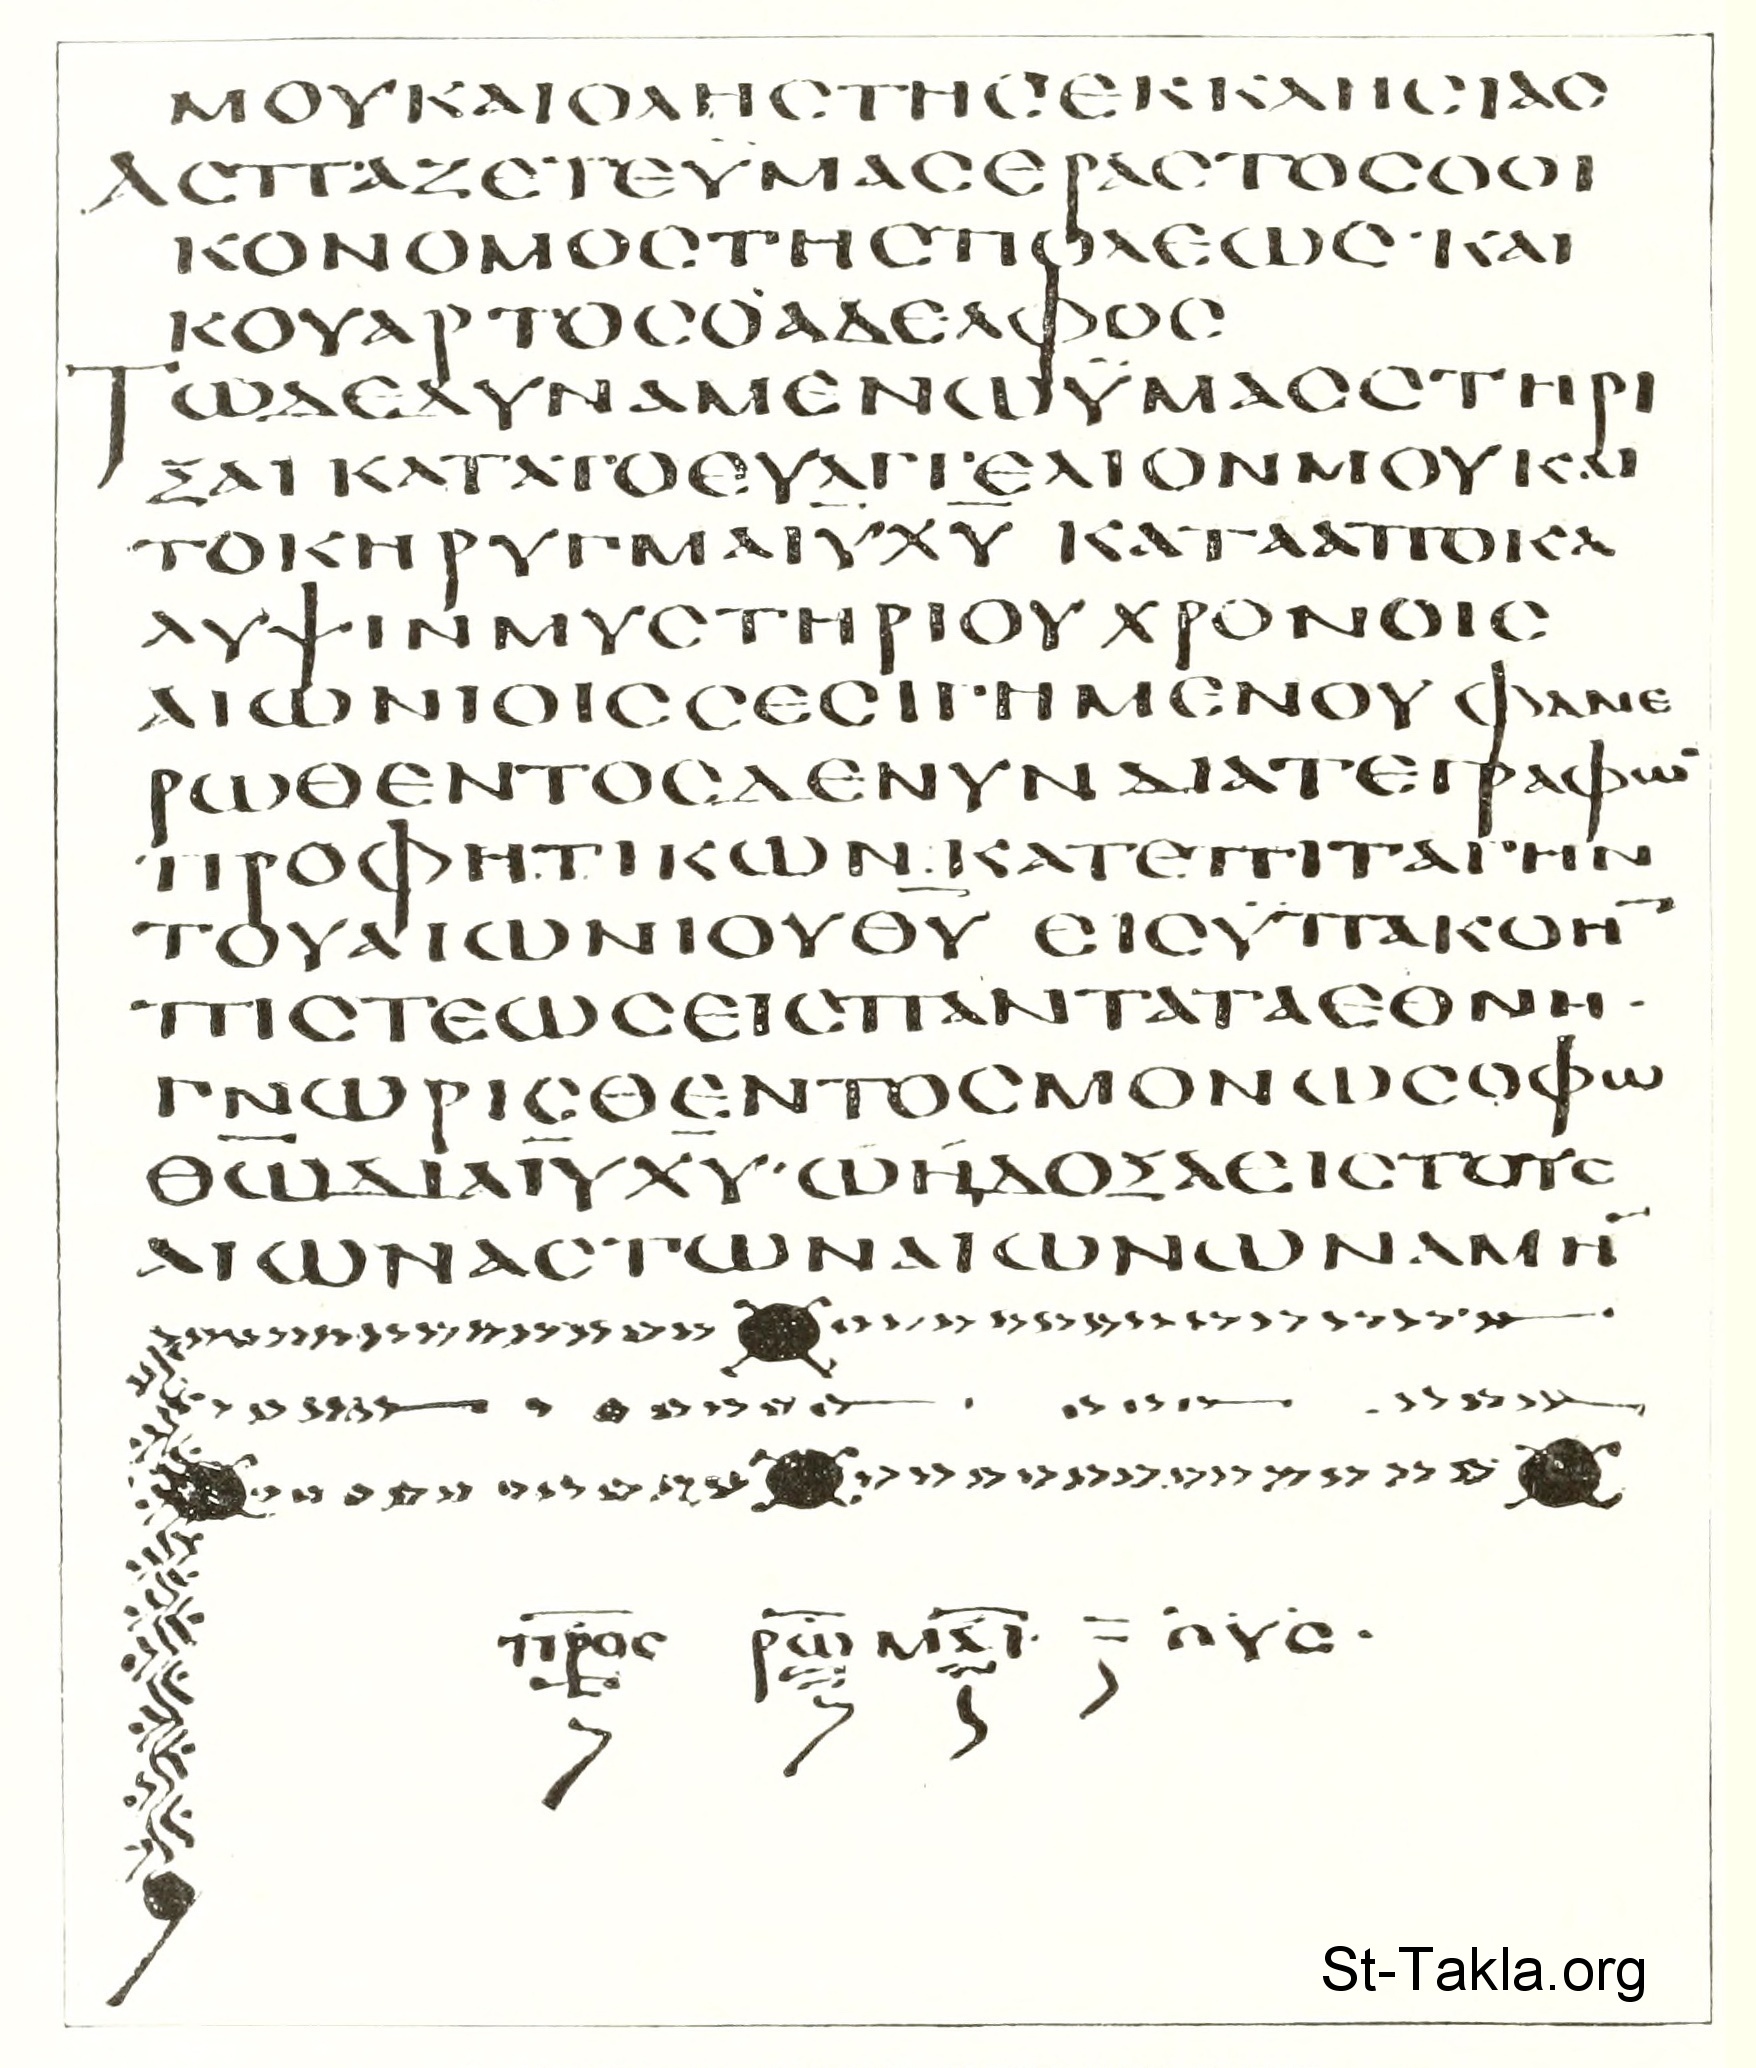 ΜΟΥΚΑΙΟΛΗСΤΗСΕΚΚΛΗСΙΑС
ΑСΠΑΖΕΤΕΫΜΑСΕΡΑСΤΟСΟΟΙ
ΚΟΝΟΜΟСΤΗСΠΟΛΕΩС·ΚΑΙ
ΚΟΥΑΡΤΟСΟΑΔΕΛΦΟС
ΤΩΔΕΔΥΝΑΜΕΝΩΫΜΑССΤΗΡΙ
ΞΑΙΚΑΤΑΤΟΕΥΑΓΓΕΛΙΟΝΜΟΥΚΑΙ
ΤΟΚΗΡΥΓΜΑΙ̅Υ̅Χ̅Υ̅ ΚΑΤΑΑΠΟΚΑ
ΛΥΨΙΝΜΥСΤΗΡΙΟΥΧΡΟΝΟΙС
ΑΙΩΝΙΟΙССΕСΙΓΗΜΕΝΟΥΦΑΝΕ
ΡΩΘΕΝΤΟСΔΕΝΥΝΔΙΑΤΕΓΡΑΦΩ̅
ΠΡΟΦΗΤΙΚΩΝ.ΚΑΤΕΠΙΤΑΓΗΝ
ΤΟΥΑΙΩΝΙΟΥΘ̅Υ̅ ΕΙСΫΠΑΚΟΗ̅
ΠΙСΤΕΩСΕΙСΠΑΝΤΑΤΑΕΘΝΗ·
ΓΝΩΡΙСΘΕΝΤΟСΜΟΝΩСΟΦΩ
Θ̅Ω̅ΔΙΑΙ̅Υ̅Χ̅Υ̅·ΩΗΔΟΞΑΕΙСΤΟΥС
ΑΙΩΝΑСΤΩΝΑΙΩΝΩΝΑΜΗ̅
ΠΡΟС ΡΩΜΑΙ· ΟΥС·
St-Takla.org